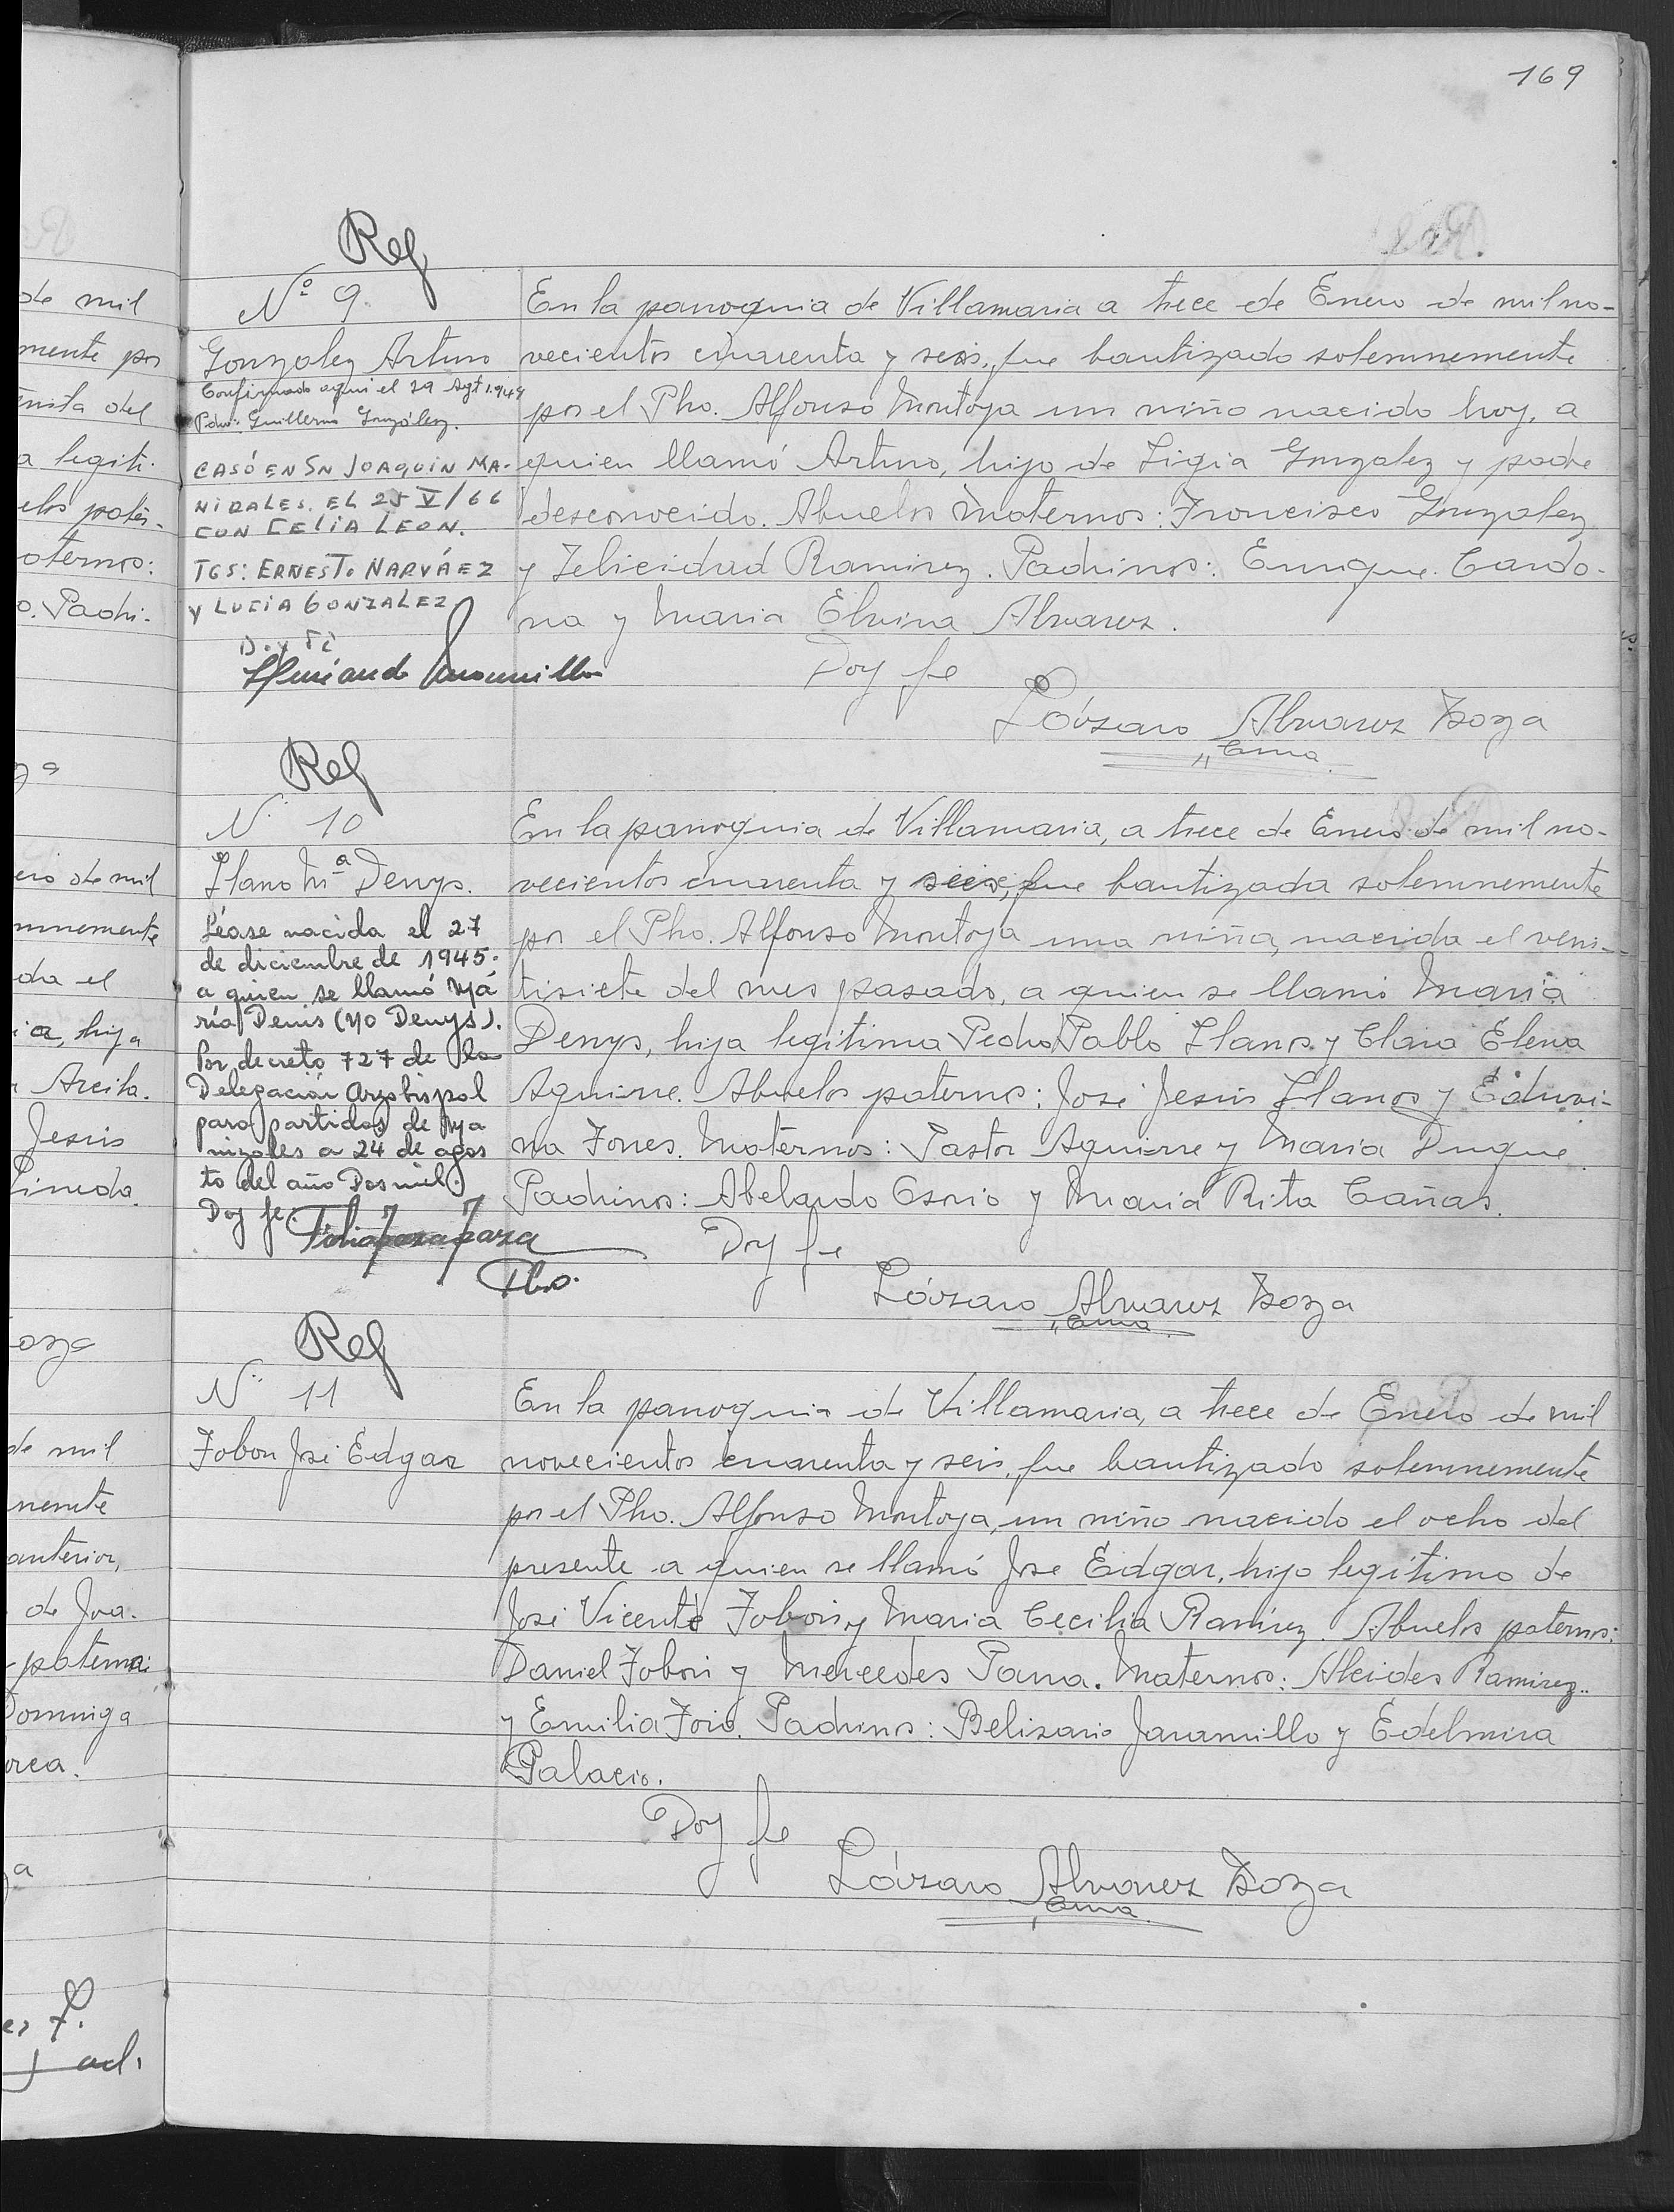 169
Ref
Nº 9.
Gonzalez Arturo
Confirmado aqui el 29 Agt 1.949
Pdno: Guillermo González.
CASÓ EN SN JOAQUIN MA-
NIZALES. EL 25 V/66
CON CELIA LEON.
TGS: ERNESTO NARVÁEZ
Y LUCIA GONZALEZ
Doy Fé
En la parroquia de Villamaria a trece de Enero de mil no-
vecientos cuarenta y seis, fue bautizado solemnemente
por el Pbo. Alfonso Montoya un niño nacido hoy, a
quien llamó Arturo, hijo de Ligia Gonzalez y padre
desconocido. Abuelos Maternos: Francisco Gonzalez
y Felicidad Ramirez. Padrinos: Enrique Cardo-
na y Maria Elvira Alvarez.
Doy fe
Lázaro Alvarez Isaza
Cura
Ref
N. 10
Llano Mª Denys.
Léase nacida el 27
de diciembre de 1945.
a quien se llamó Ma
ría Denis (no Denys).
Por decreto 727 de la
Delegación Arzobispal
para partidas de Ma
nizales a 24 de agos
to del año Dos mil.
Doy fe:
Pbo.
En la parroquia de Villamaria, a trece de Enero de mil no-
vecientos cuarenta y seis, fue bautizada solemnemente
por el Pbo. Alfonso Montoya una niña, nacida el vein-
tisiete del mes pasado, a quien se llamó Maria
Denys, hija legitima Pedro Pablo Llanos y Clara Elena
Aguirre. Abuelos paternos: José Jesús Llanos y Eduvi-
na Torres. Maternos: Pastor Aguirre y Maria Duque.
Padrinos: Abelardo Osorio y Maria Rita Cañas.
Doy fe
Lázaro Alvarez Isaza
Cura
Ref
N. 11
Tobon José Edgar
En la parroquia de Villamaria, a trece de Enero de mil
novecientos cuarenta y seis, fue bautizado solemnemente
por el Pbo. Alfonso Montoya, un niño nacido el ocho del
presente a quien se llamó Jose Edgar, hijo legítimo de
José Vicente Tobon y Maria Cecilia Ramírez. Abuelos paternos:
Daniel Tobon y Mercedes Parra. Maternos: Alcides Ramirez
y Emilia Toro. Padrinos: Belizario Jaramillo y Edelmira
Palacio.
Doy fe
Lázaro Alvarez Isaza
Cura